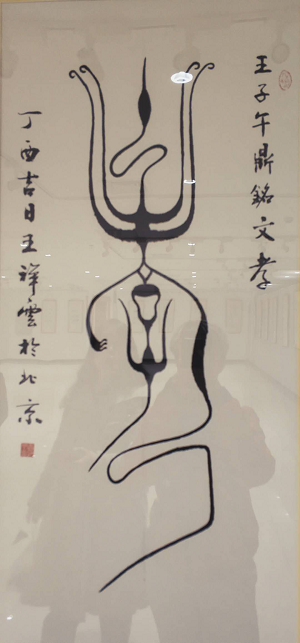 王子午鼎銘文孝
丁酉吉日王祥雲於北京